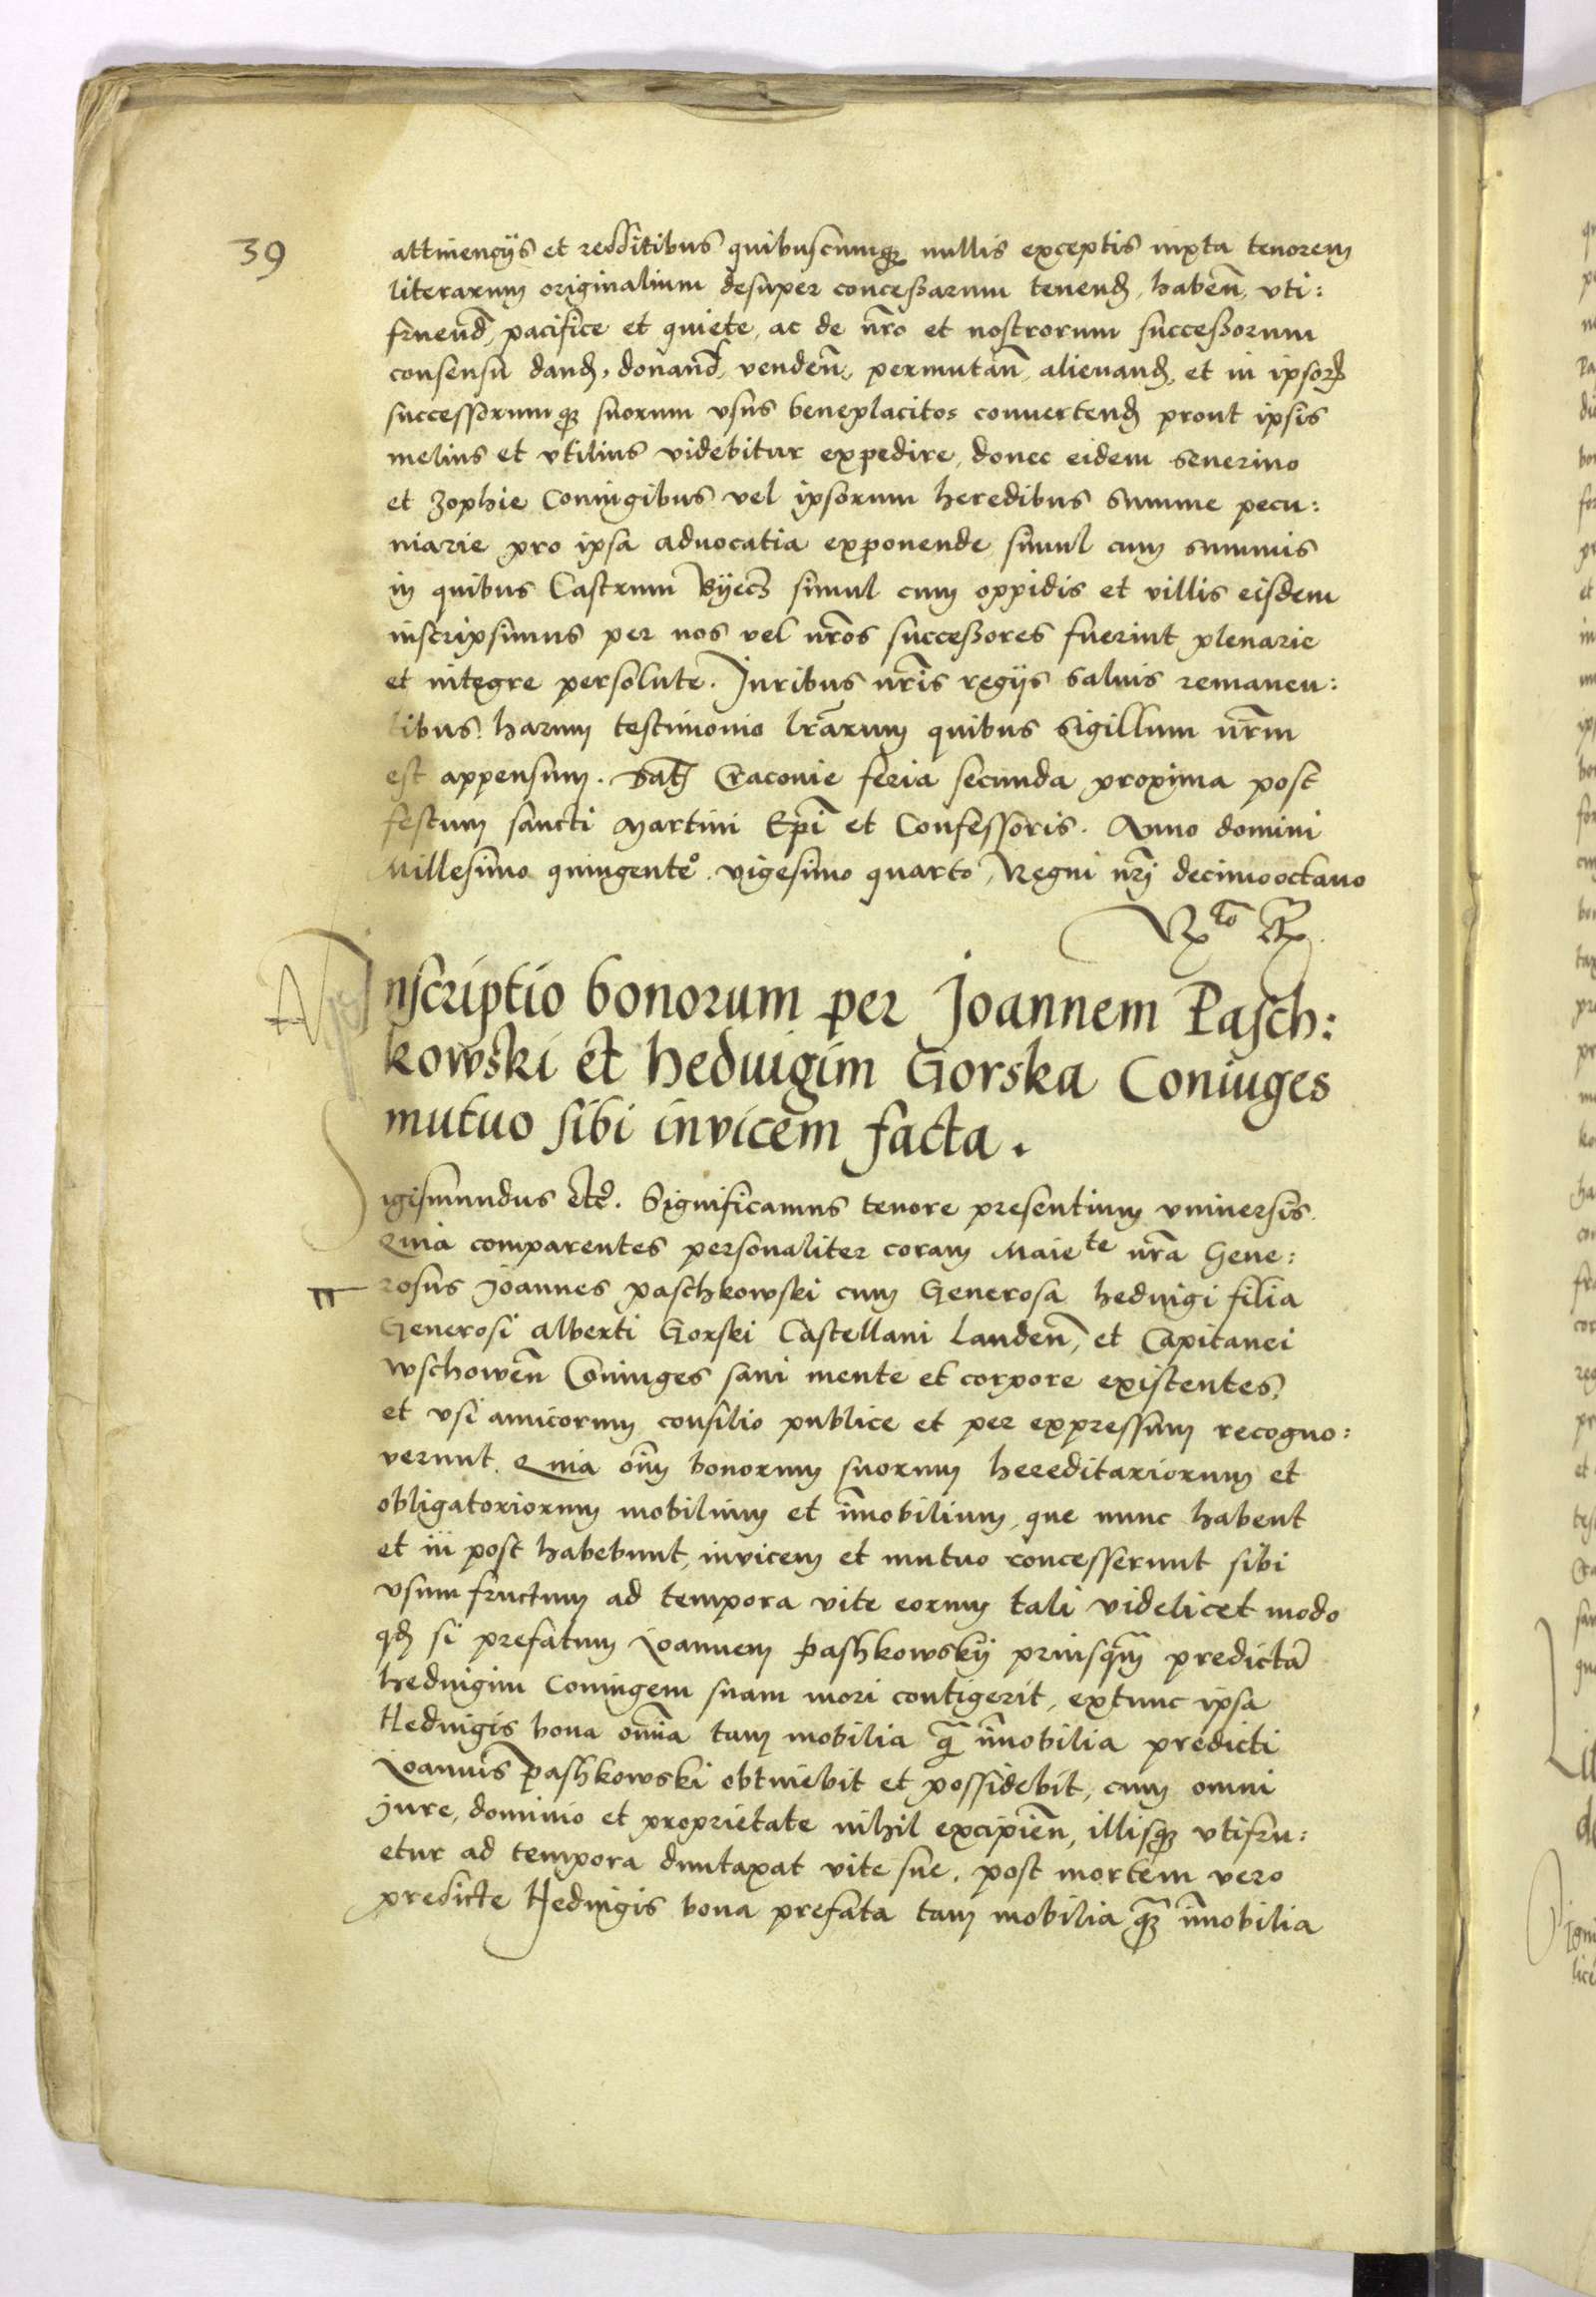 39
attinencijs et redditibus quibuscunqꝫ nullis exceptis iuxta tenorem
literarum originalium desuper conceßarum tenendꝭ, habeñ, vti:
fruend̃, pacifice et quiete, ac de nr̃o et nostrorum succeßorum
consensu dandꝭ, donand̃, vendeñ, permutañ, alienandꝭ, et in ipsoꝝ
successorumqꝫ suorum vsus beneplacitos conuertendꝭ prout ipsis
melius et vtilius videbitur expedire, donec eidem Seuerino
et Zophie Coniugibus vel ipsorum heredibus summe pecu:
niarie pro ipsa aduocatia exponende, simul cum summis
in quibus Castrum Byecz simul cum oppidis et villis eisdem
inscripsimus per nos vel nr̃os succeßores fuerint plenarie
et integre persolute. Juribus nr̃is regijs saluis remanen:
tibus. harum testimonio lr̃arum quibus Sigillum nr̃m
est appensum. Datꝭ Cracouie feria secunda proxima post
festum sancti Martini Ep̃i et Confessoris. Anno domini
Millesimo quingente͏ͦ. vigesimo quarto, Regni nr̃j decimooctauo
Inscriptio bonorum per Joannem Pasch:
kowski et Heduigim Gorska Coniuges
mutuo sibi invicem facta.
Sigismundus etc̃. Significamus tenore presentium vniuersis.
Quia comparentes personaliter coram Maieᵗᵉ nr̃a Gene:
rosus Joannes Paschkowski cum Generosa heduigi filia
Generosi Alberti Gorski Castellani Landeñ, et Capitanei
Wschoweñ Coniuges sani mente et corpore existentes,
et vsi amicorum consilio publice et per expressum recogno:
verunt. Quia om̃m bonorum suorum hereditariorum et
obligatoriorum mobilium et im̃obilium, que nunc habent
et in post habebunt, invicem et mutuo concesserunt sibi
vsumfructum ad tempora vite eorum tali videlicet modo
qdꝭ si prefatum Joannem Pashkowskij priusq̃m predictã
heduigim Coniugem suam mori contigerit, extunc ipsa
Heduigis bona om̃ia tam mobilia q̃ im̃obilia predicti
Joannis Pashkowski obtinebit et possidebit, cum omni
jure, dominio et proprietate nihil excipieñ, illisqꝫ vtifru:
etur ad tempora duntaxat vite sue, post mortem vero
predicte Heduigis bona prefata tam mobilia q̃ꝫ im̃obilia